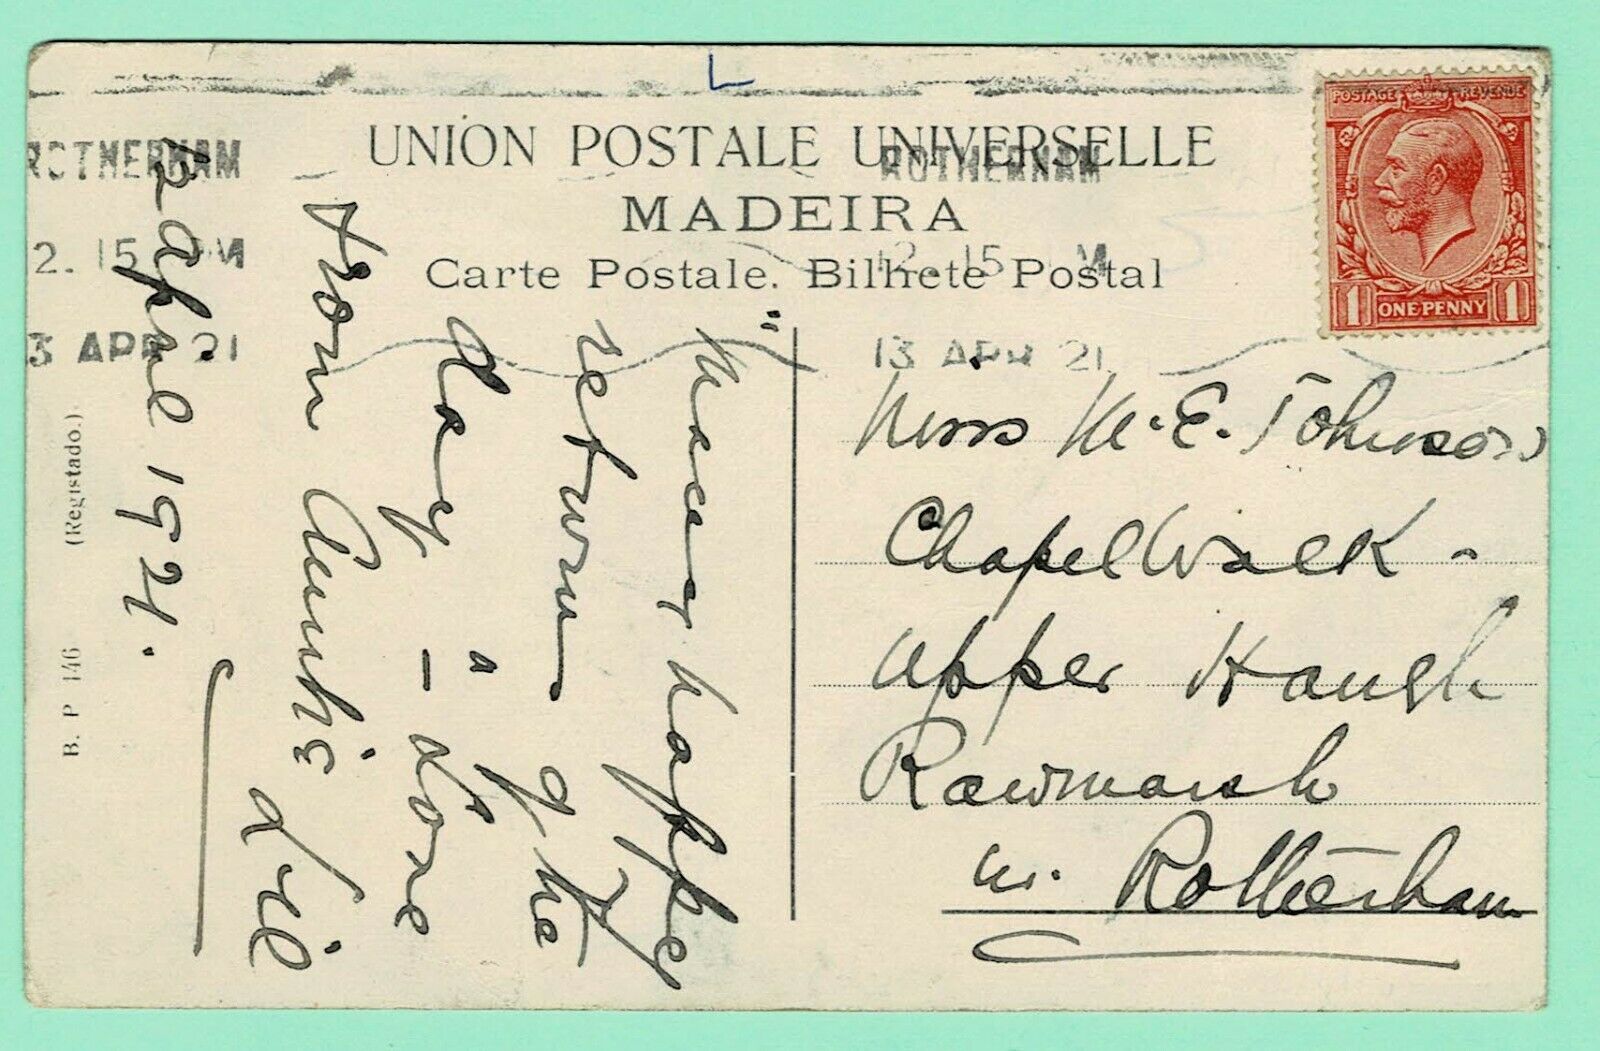 L
ROTHERHAM
2. 15 PM
3 APR 21
ROTHERHAM
12. 15 M
13 APR 21
POSTAGE REVENUE
1 ONE PENNY 1
UNION POSTALE UNIVERSELLE
MADEIRA
Carte Postale. Bilhete Postal
"Many happy
return of the
day" – Love
from Auntie Lil
12 April 1921.
B. P 146 (Registado.)
Miss M. E. Johnson
Chapel Walk -
Upper Haugh
Rawmarsh
nr. Rotherham